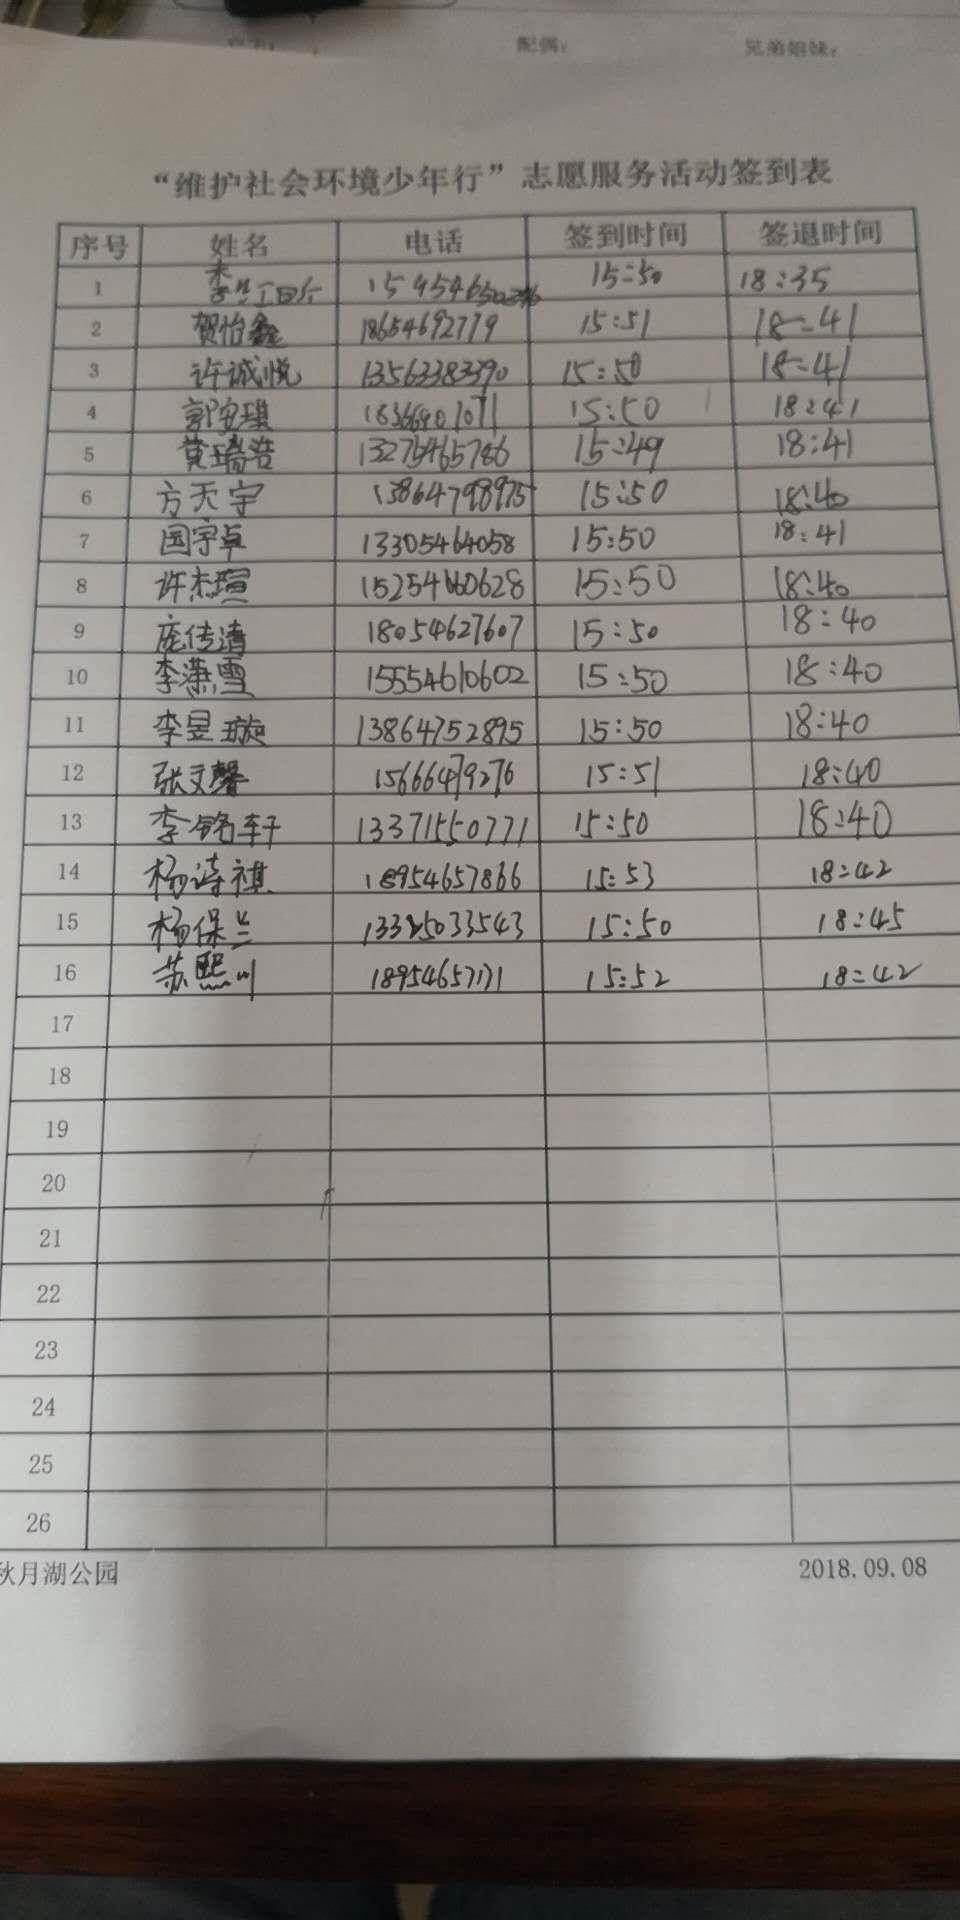 配偶：
兄弟姐妹：
“维护社会环境少年行”志愿服务活动签到表
序号 姓名 电话 签到时间 签退时间
1 15:50 18:35
2 贺怡鑫 18654692779 15:51 18:41
3 许诚悦 13563383390 15:50 18:41
4 郭安琪 15:50 18:41
5 黄瑞浩 13275465786 15:49 18:41
6 方天宇 13864798975 15:50 18:40
7 国宇卓 13305464058 15:50 18:41
8 许杰瑄 15254660628 15:50 18:40
9 庞传清 18054627607 15:50 18:40
10 李潇雪 15554610602 15:50 18:40
11 李昱璇 13864752895 15:50 18:40
12 张文馨 15666479276 15:51 18:40
13 李铭轩 13371550771 15:50 18:40
14 杨诗祺 18954657866 15:53 18:42
15 杨保兰 13325033543 15:50 18:45
16 苏熙川 18954657171 15:52 18:42
17
18
19
20
21
22
23
24
25
26
秋月湖公园 2018.09.08